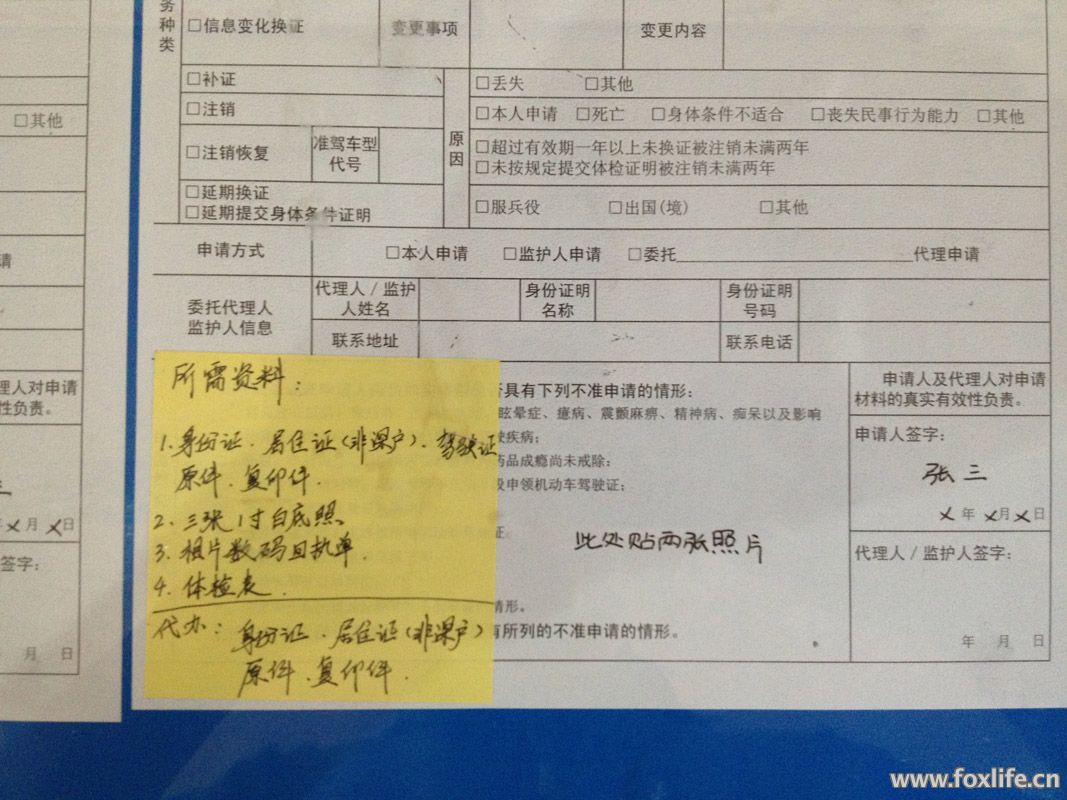 务
种
类
□信息变化换证
变更事项
变更内容
□补证
□丢失 □其他
□注销
□本人申请 □死亡 □身体条件不适合 □丧失民事行为能力 □其他
□注销恢复
准驾车型
代号
原
因
□超过有效期一年以上未换证被注销未满两年
□未按规定提交体检证明被注销未满两年
□延期换证
□延期提交身体条件证明
□服兵役 □出国(境) □其他
申请方式
□本人申请 □监护人申请 □委托 代理申请
委托代理人
监护人信息
代理人/监护
人姓名
身份证明
名称
身份证明
号码
联系地址
联系电话
具有下列不准申请的情形:
眩晕症、癔病、震颤麻痹、精神病、痴呆以及影响
疾病;
药品成瘾尚未戒除:
申领机动车驾驶证;
证:
此处贴两张照片
情形。
有所列的不准申请的情形。
申请人及代理人对申请
材料的真实有效性负责。
申请人签字:
张三
x年x月x日
代理人/监护人签字:
年 月 日
所需资料:
1.身份证.居住证(非深户)、驾驶证
原件、复印件.
2.三张1寸白底照
3.相片数码回执单.
4.体检表.
代办:身份证.居住证(非深户)
原件、复印件.
□其他
请
理人对申请
性负责。
三
x月x日
签字:
月 日
www.foxlife.cn